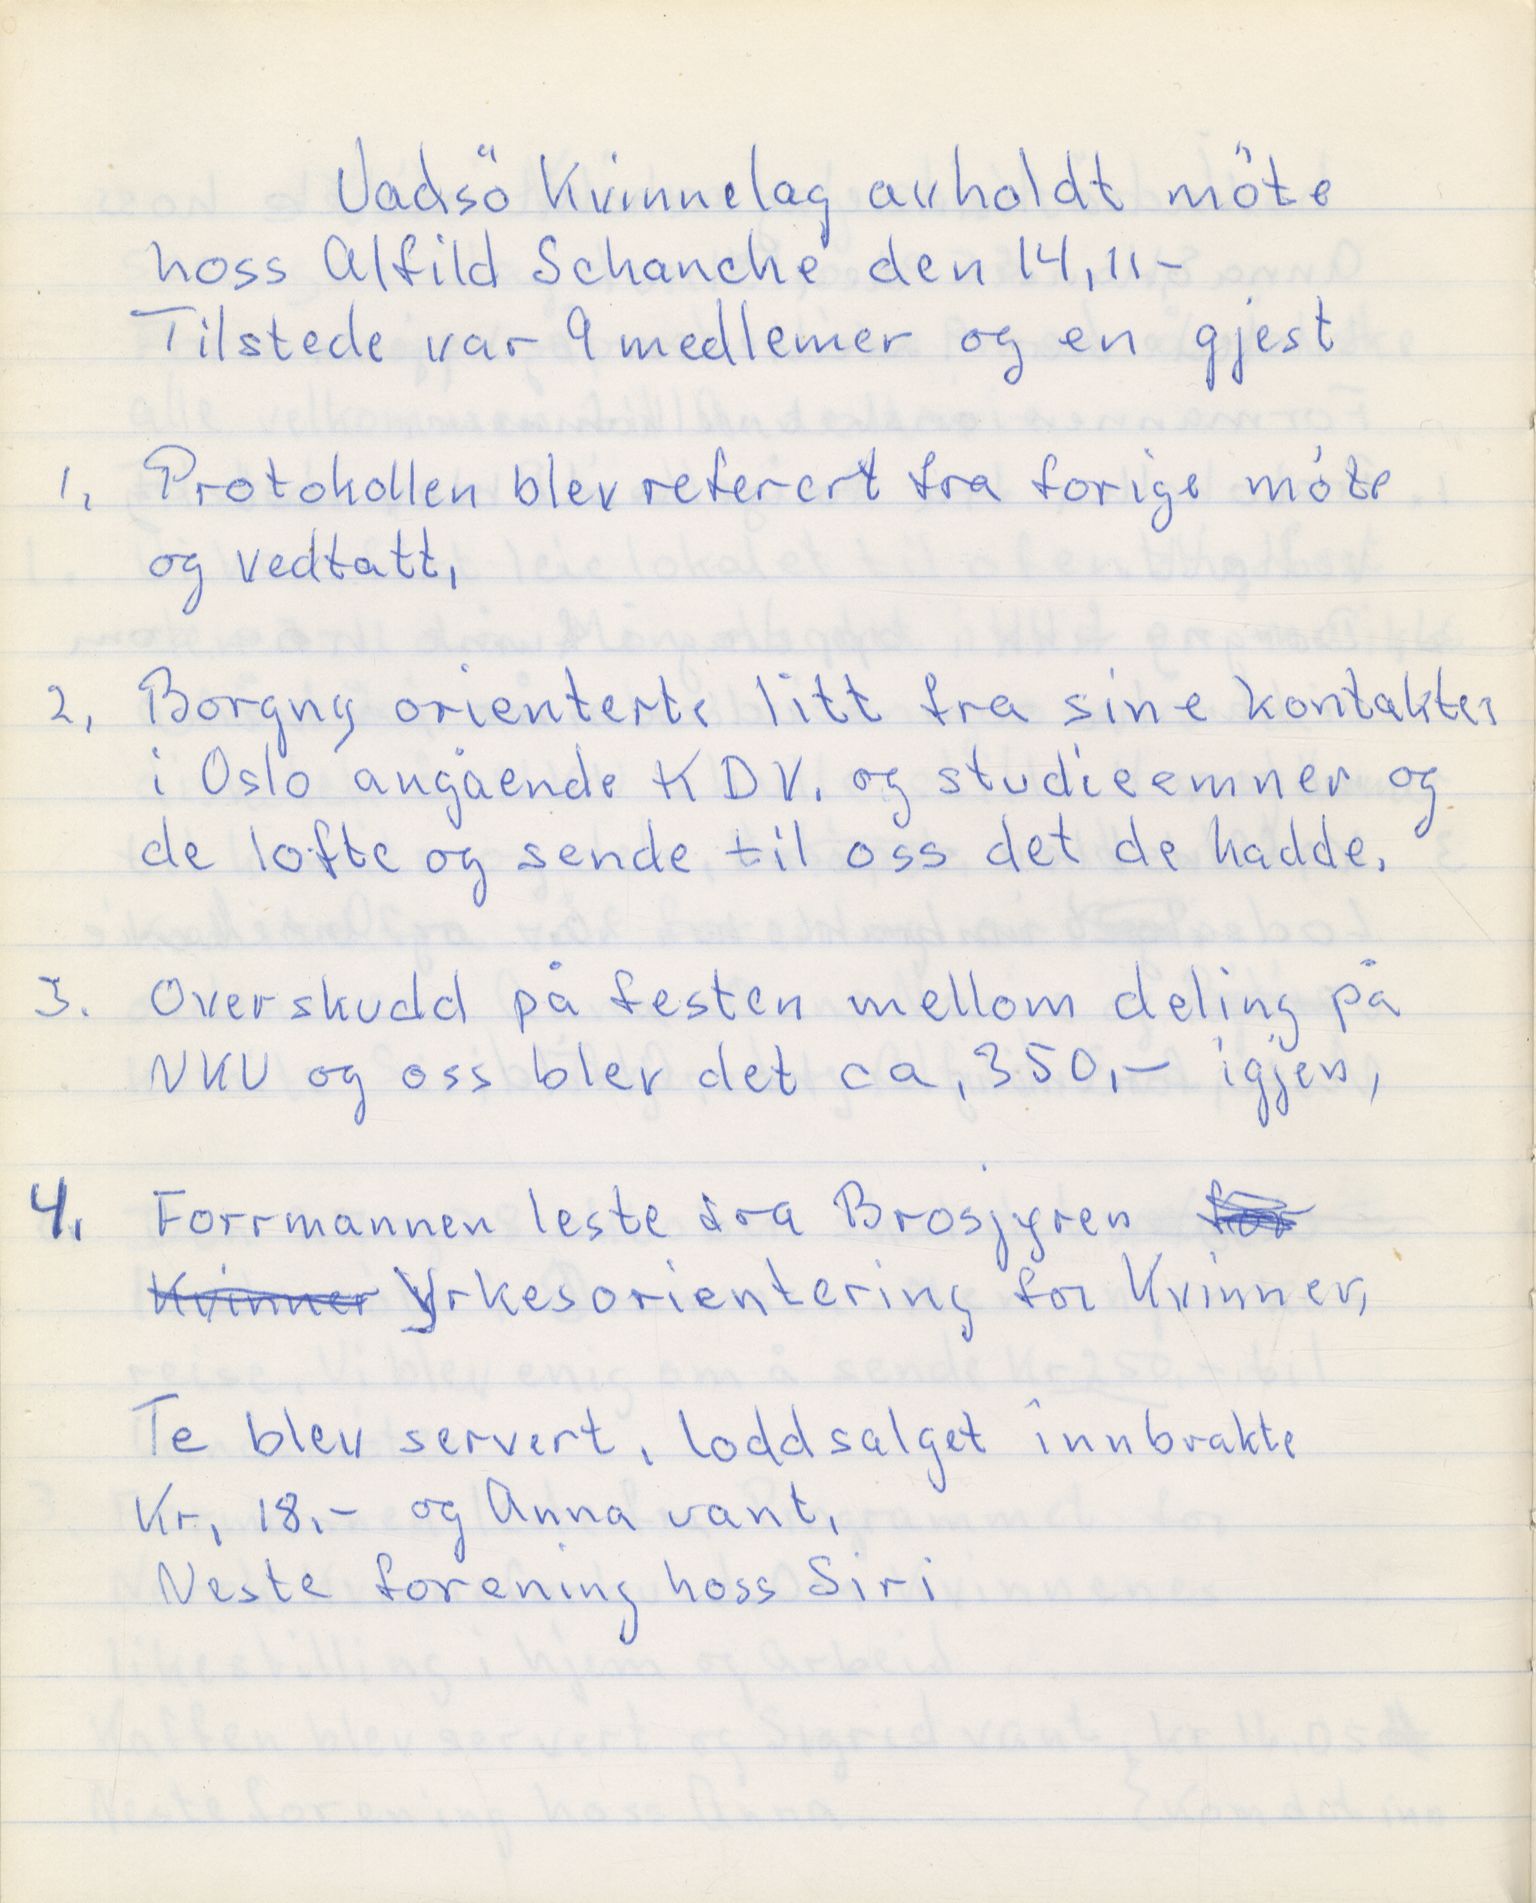 Vadsö Kvinnelag avholdt möte
hoss Alfild Schanche den 14,11-
Tilstede var 9 medlemer og en gjest
1, Protokollen blev referert fra forige möte
og vedtatt,
2, Borgny orienterte litt fra sine kontakter
i Oslo angående KDV. og studieemner og
de lofte og sende til oss det de hadde.
3. Overskudd på festen mellom deling på
NKU og oss blev det ca, 350,- igjen,
4. Forrmannen leste fra Brosjyren for
Kvinner Yrkesorientering for Kvinner,
Te blev servert, loddsalget innbrakte
Kr, 18.- og Anna vant,
Neste forening hoss Siri